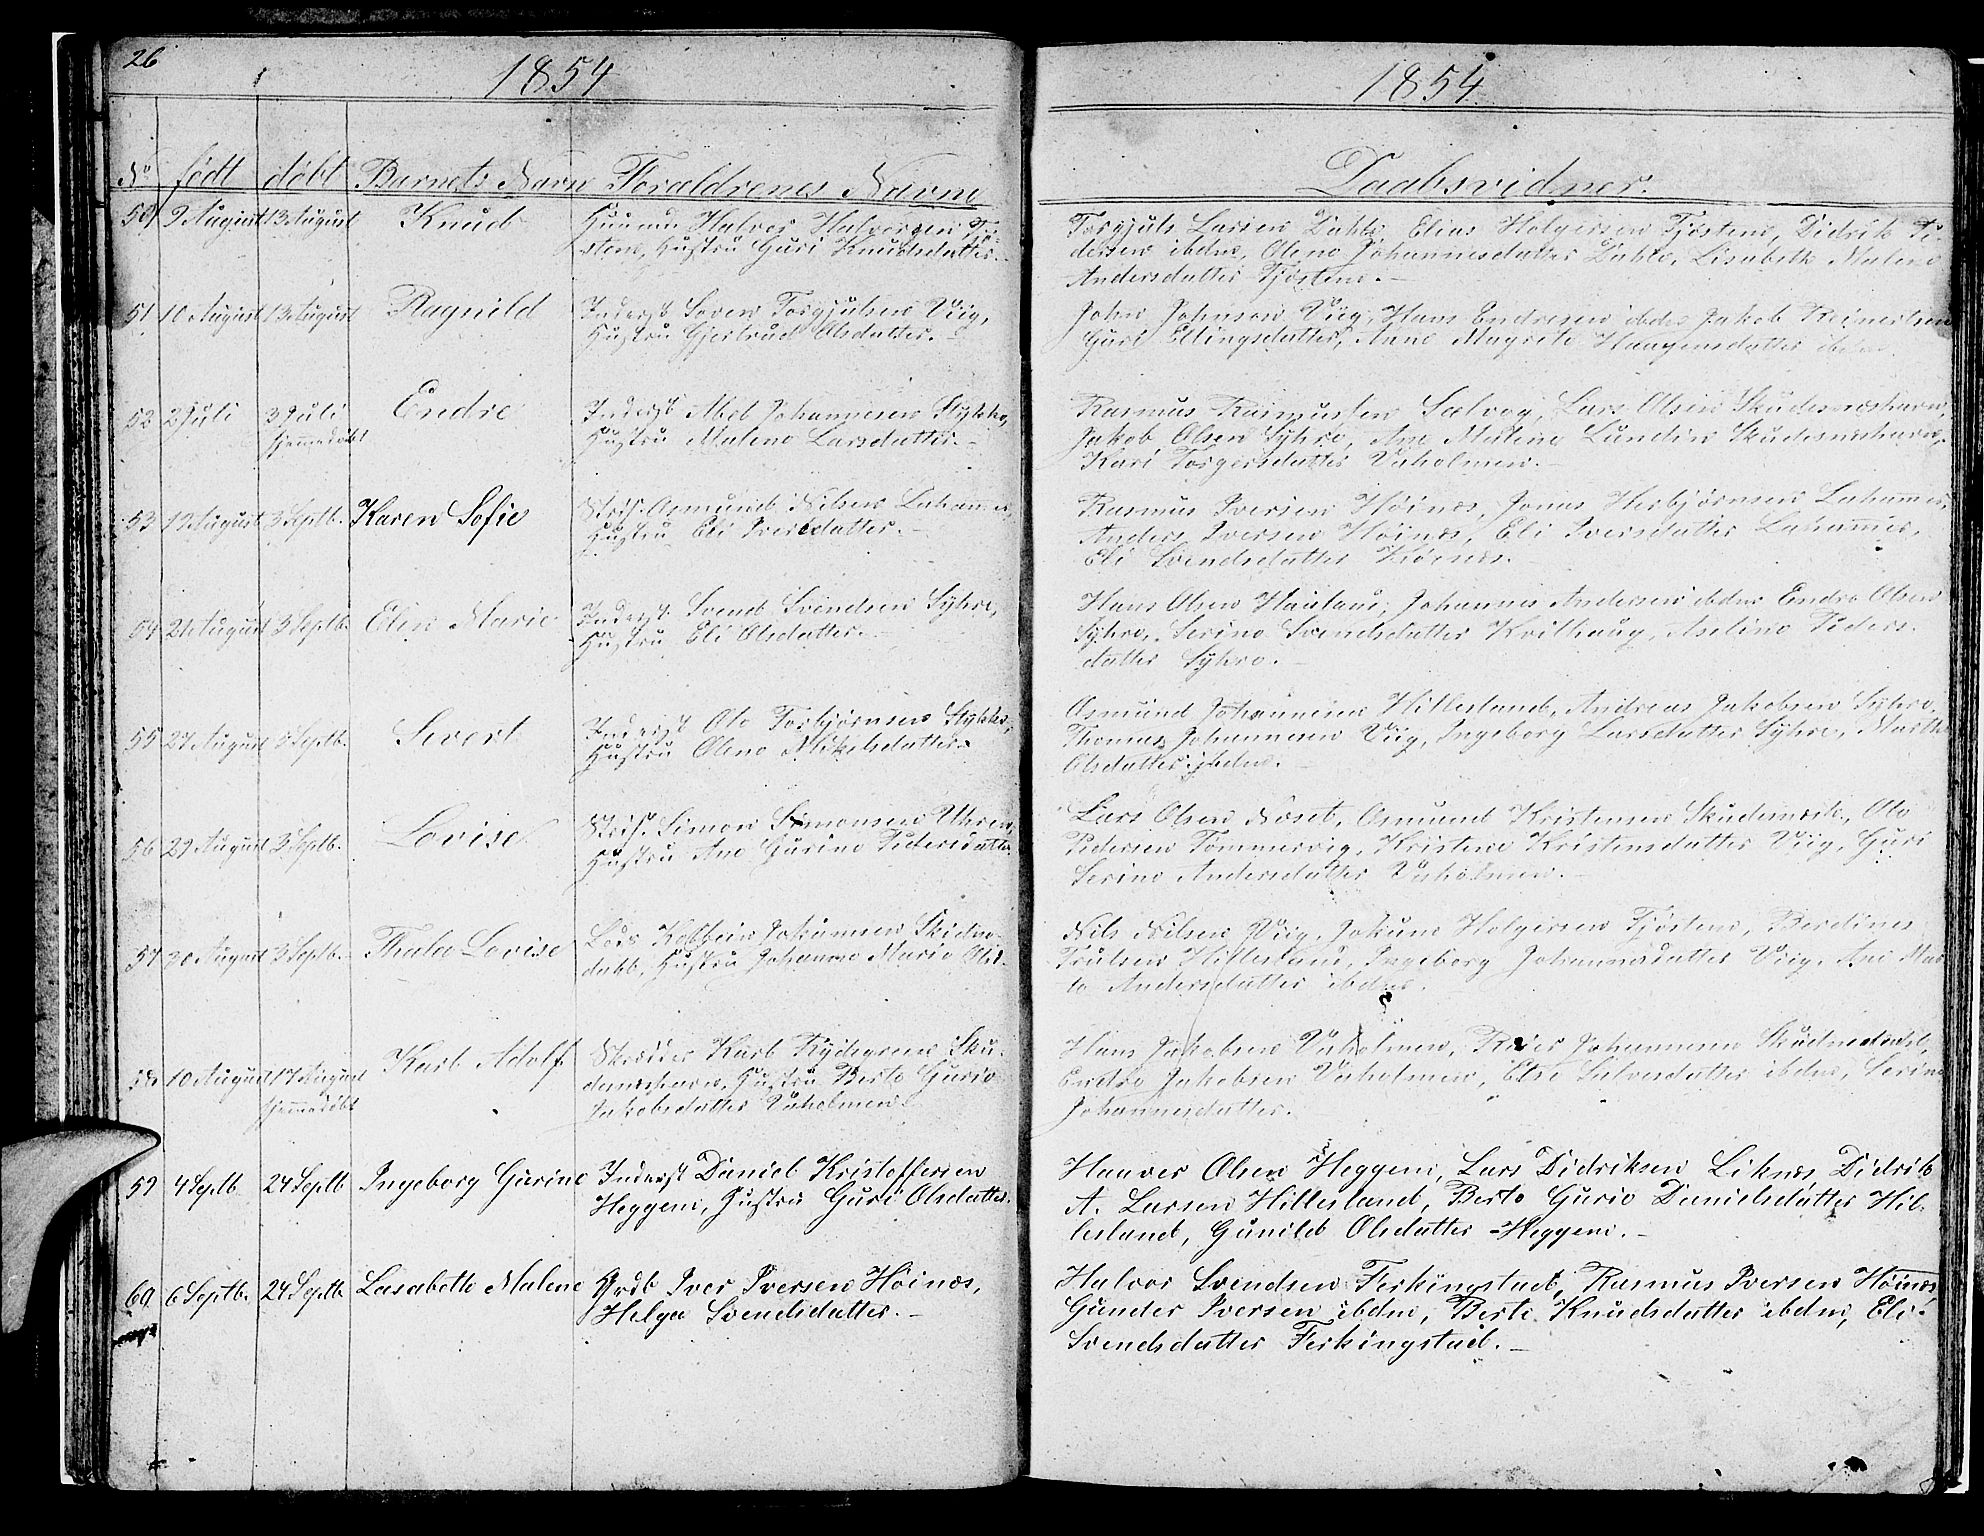 26
1854
1854
No født døbt Barnets Navn Forældrenes Navne
Daabsvidner.
50 9 August 13 August Knud
Halvor Halvorsen
stene, Hustru Guri Knudsdatter.
Torgjuls Larsen Dahle, Elias Holgersen Fjøstene, Didrik Pe-
dersen ibdne, Olene Johannesdatter Dahle, Lisabeth Malene
Andersdatter Fjøstene.-
51 10 August 13 August Ragnild
Inderst Soren Torgjulsen Viig,
Hustru Gjertrud Olsdatter.-
John Johnsen Viig, Hans Endresen ibdne Jakob Reinertsen
Guri Ellingsdatter, Anne Magrite Haagensdatter ibdne.
52 2 Juli 3 Juli Endre
hjemmedøbt
Inderst Abel Johannesen Stykke,
Hustru Malene Larsdatter.-
Rasmus Rasmussen Salvøg, Lars Olsen Skudesneshavn,
Jakob Olsen Syhre, Ane Malene Lundin Skudesneshavn,
Kari Torgersdatter Vaholmen.-
53 19 August 3 Septb. Karen Sofie
Asmund Nilsen Lahammer,
Hustru Eli Iversdatter.-
Rasmus Iversen Høines, Jonas Herbjørnsen Lahammer,
Anders Iversen Høines, Eli Iversdatter Lahammer,
Eli Svendsdatter Høines.
54 21 August 3 Septb. Elen Marie
Inderst. Svend Svendsen Syhre,
Hustru Eli Olsdatter.-
Hans Olsen Hauland, Johannes Andersen ibdne Endre Olsen
Syhre, Serine Svendsdatter Kvilhaug, Aseline Peders-
datter Syhre.-
55 27 August 3 Septb. Severt
Inderst Ole Torbjørnsen Stykke,
Hustru Olene Mikelsdatter
Asmund Johannesen Hillesland, Andreas Jakobsen Syhre,
Thomas Johannesen Viig, Ingeborg Larsdatter Syhre, Marthe
Olsdatter ibdne.-
56 29 August 3 Septb. Lovise
Simon Simonsen Uhren,
Hustru Ane Gurine Pedersdatter
Lars Olsen Neset, Asmund Kristensen Skudenæs, Ole
Pedersen Tømmervig, Kristene Kristensdatter Viig, Guri
Serine Andersdatter Vaholmen.-
57 30 August 3 Septb. Thale Lovise
Lods Kolbein Johannesen Skidne-
dahl, Hustru Johanne Marie Ols-
Nils Nilsen Viig, Jokum Holgersen Fjøstene, Berdines
Trulsen Hillesland, Ingeborg Johannesdatter Viig, Ane Mar-
te Andersdatter ibdne.
58 10 August 17 August Karl Adolf
hjemmedøbt
Skrædder Karl Rydegrene Sku-
denæshavn, Hustru Berte Gurie
Jakobsdatter Vaholmen.
Hans Jakobsen Vaholmen, Johannesen
Endre Jakobsen Vaholmen, Else Salvesdatter ibdne, Serine
Johannesdatter.
59 4 Septb. 24 Septb Ingeborg Gurine
Inderst Daniel Kristoffersen
Heggem, Hustru Guri Olsdatter.
Haaver Olsen Heggem, Lars Didriksen Liknes Didrik
A. Larsen Hillesland, Berte Gurie Danielsdatter Hil-
lesland, Gunild Olsdatter Heggem.-
60 6 Septb. 24 Septb. Lasabeth Malene
Grdb Iver Iversen Høines,
Helga Svendsdatter.-
Halvor Svendsen Ferkingstad, Rasmus Iversen Høines,
Gunder Iversen ibdne, Berte Knudsdatter ibdne, Eli
Svendsdatter Ferkingstad.-